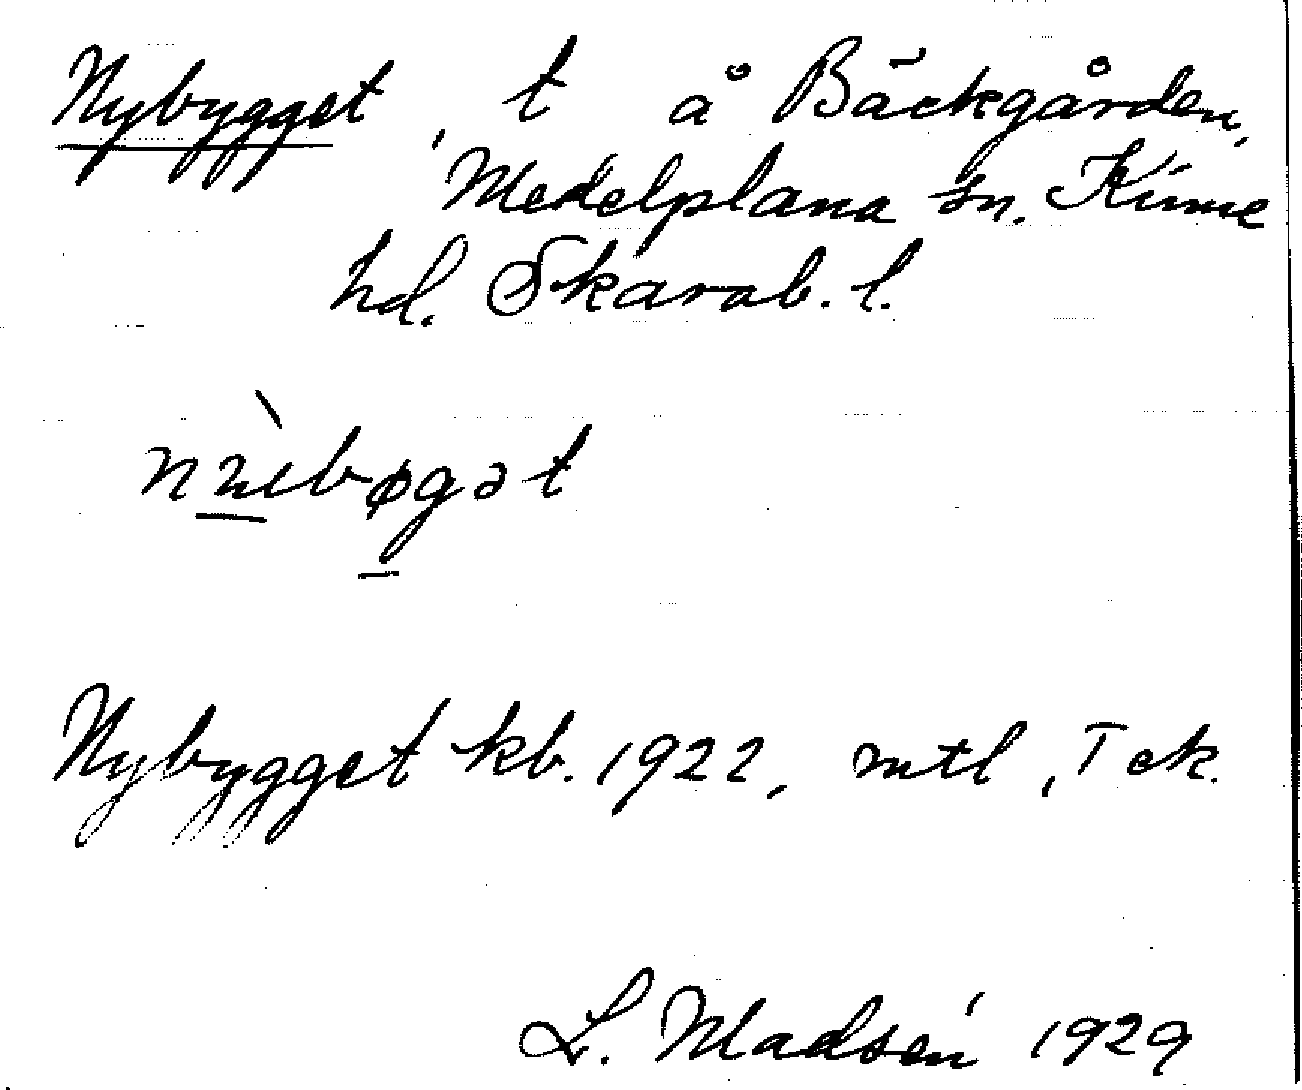 Nybygget, t å Bäckgården,
Medelplana sn. Kinne
hd. Skarab. l.
Nybygget kb. 1922, mtl, Tek.
L. Madsén 1929